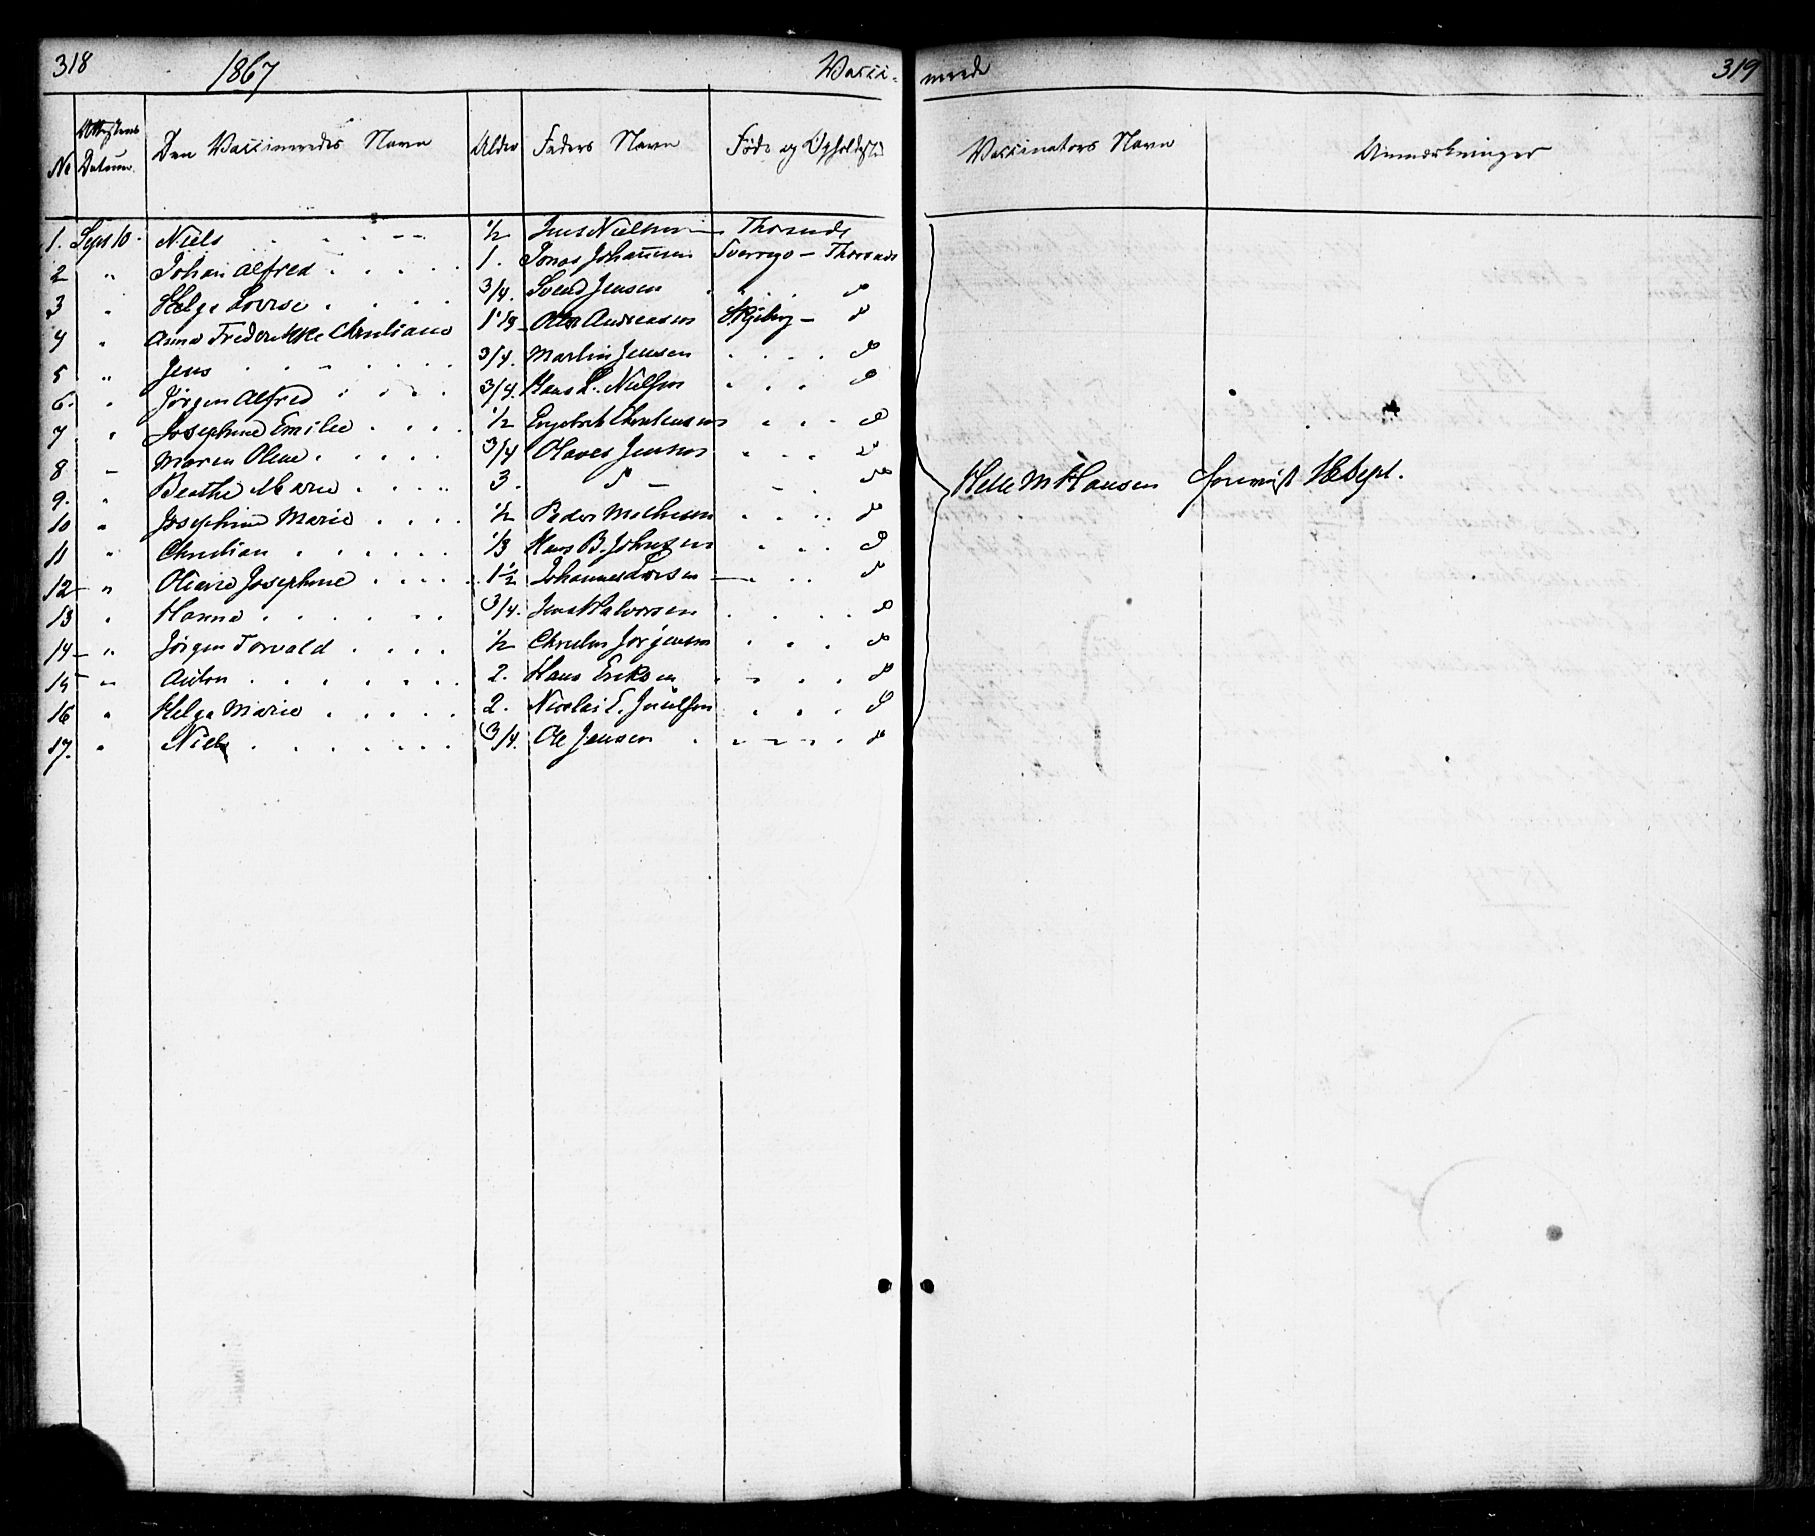 318 1867 Vacci- nerede 319
No Attestens Datum Den Vaccineredes Navn Alder Faders Navn Føde og Opholdssted Vaccinators Navn Anmærkninger
1. Sept 10. Niels 1/2 Jens Nielsen Thorsnæs
2 " Johan Alfred 1. Jonas Johannesen Sverrige - Thorsnæs
3 " Helga Lovise 3/4. Svend Jensen " do
4 " Anna Frederikke Christiane 1 1/3 Andreasen Skjeberg - do
5 " Jens 3/4. Martin Jensen do
6. " Jørgen Alfred 3/4. Hans L. Nielsen do
7 " Josephine Emilie 1/2 Engebret Christensen do
8 - Maren Oline 3/4 Olaves Jensen do
9. " Beathe Marie 3. do - do
10 " Josephine Marie 1/2 Peder Mathesen do
11 " Christian 1/3 Hans B. Johnsen do
12 - " Oliane Josephine 1 1/2 Johannes Larsen do
13 " Hanna 3/4. Jens Halvorsen do
14 - " Jørgen Torvald 1/2 Christen Jørgensen do
15 - " Anton 2. Hans Eriksen do
16 " Helga Marie 2. Nicolai E. Juulsen do
17. " Niels 3/4. Ole Jensen do
Helle M Hansen forevist Sept.